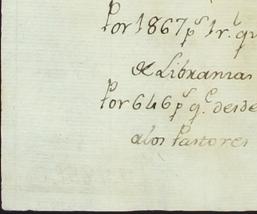 Por 1867 p.s 1 r.l q
de Libranzas
Por 646 p.s q.e desde
a los Pastores